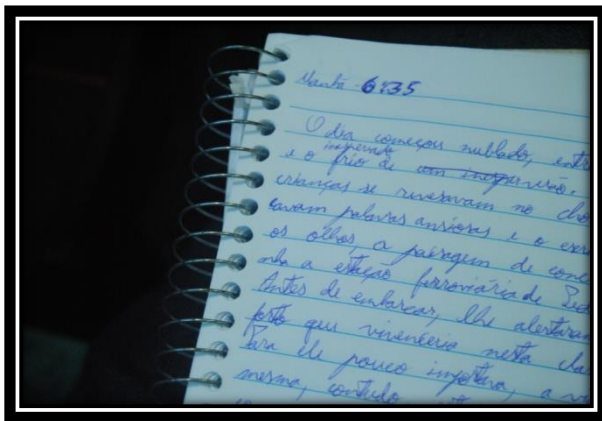 Manhã 6:35
O dia começou nublado, entre
inesperado
e o frio de um
crianças se revesavam no cho
cavam palavras ansiosas e o exer
os olhos, a paisagem de conc
nha a estação ferroviária de
Antes de embarcar, lhe alertaram
que vivenciaria nesta cla
Para ele pouco importava, a vi
mesma, contudo